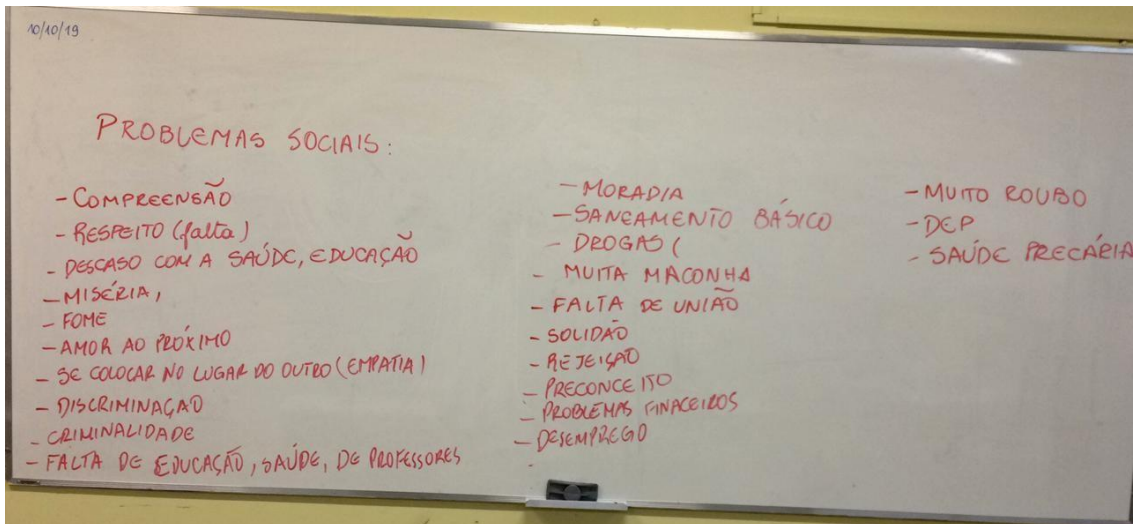 10/10/19
PROBLEMAS SOCIAIS:
- COMPREENSÃO
- RESPEITO (falta)
- DESCASO COM A SAÚDE, EDUCAÇÃO
- MISÉRIA,
- FOME
- AMOR AO PRÓXIMO
- SE COLOCAR NO LUGAR DO OUTRO (EMPATIA)
- DISCRIMINAÇÃO
- CRIMINALIDADE
- FALTA DE EDUCAÇÃO, SAÚDE, DE PROFESSORES
- MORADIA
- SANEAMENTO BÁSICO
- DROGAS (
- MUITA MACONHA
- FALTA DE UNIÃO
- SOLIDÃO
- REJEIÇÃO
- PRECONCEITO
- PROBLEMAS FINACEIROS
- DESEMPREGO
- MUITO ROUBO
- DEP
- SAÚDE PRECÁRIA